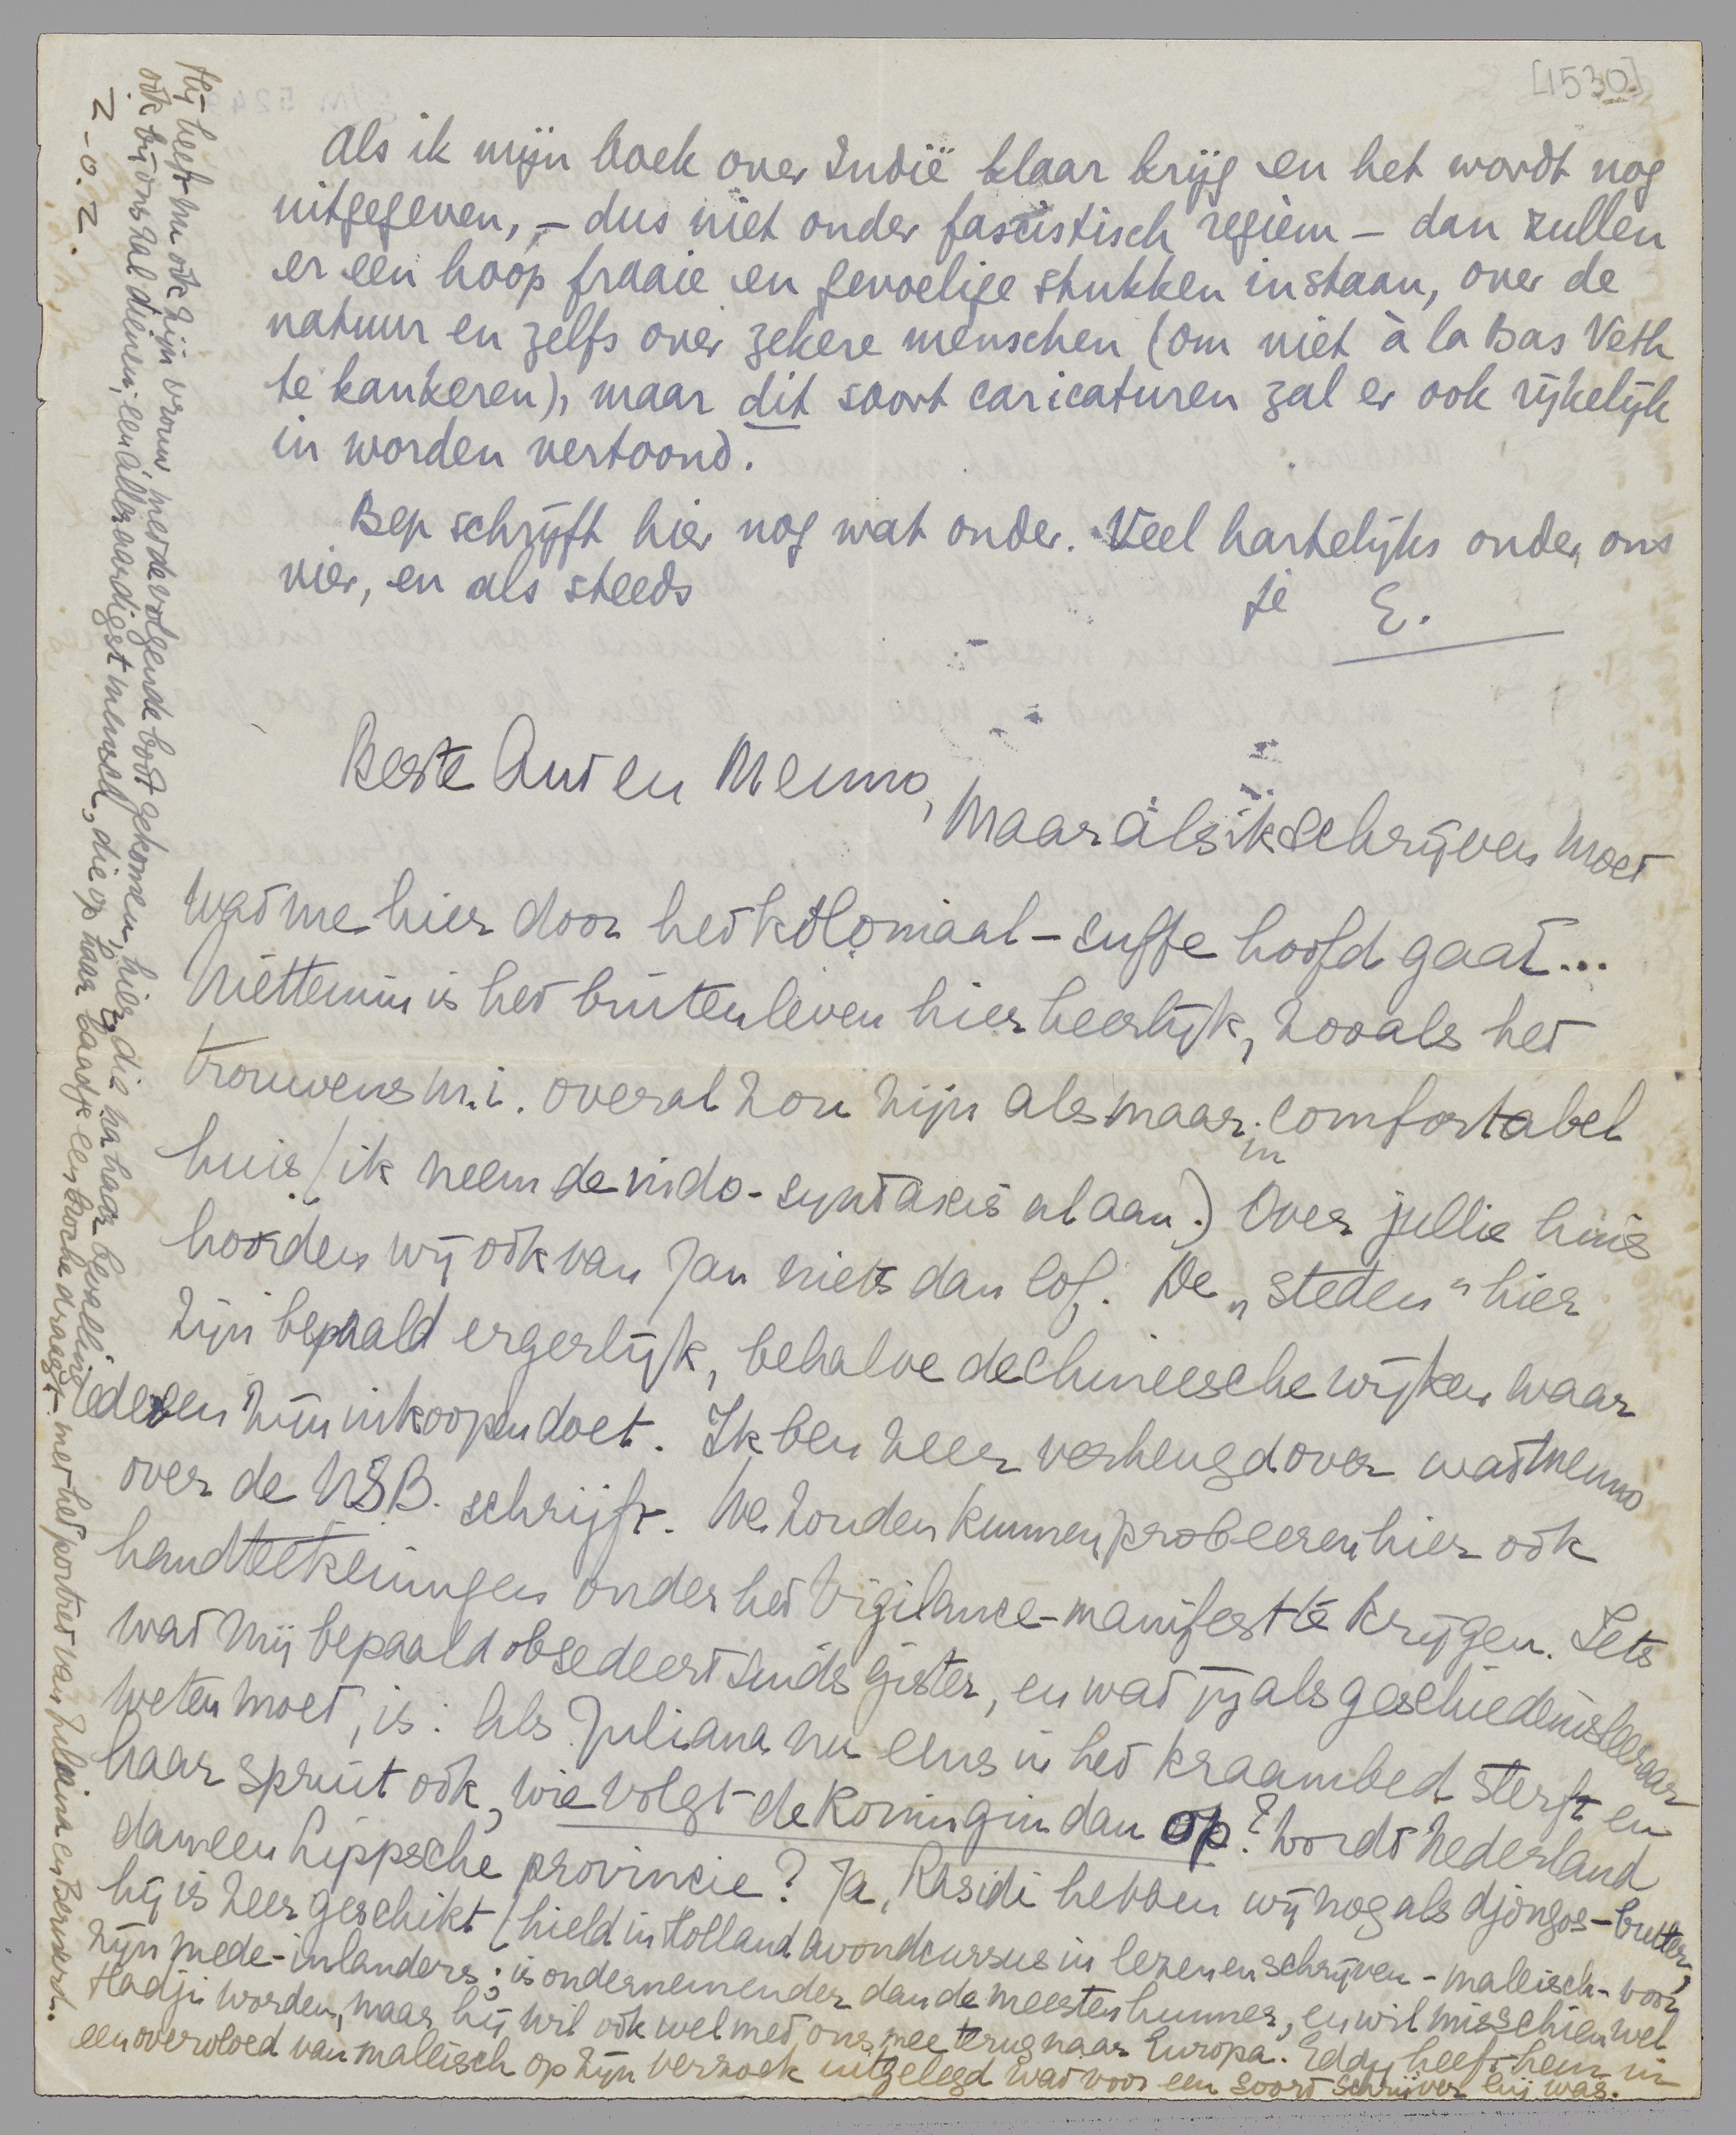 [1530]
Als ik mijn boek over Indië klaar krijg en het wordt nog
uitgegeven, – dus niet onder fascistisch regiem – dan zullen
er een hoop fraaie en gevoelige stukken instaan, over de
natuur en zelfs over zekere menschen (om niet à la Bas Veth
te kankeren), maar dit soort caricaturen zal er ook rijkelijk
in worden vertoond.
Bep schrijft hier nog wat onder. Veel hartelijks onder ons
vier, en als steeds
je E.
Beste Ant en Menno,
Maar als ik schrijven moet
wat me hier door het koloniaal-suffe hoofd gaat...
Niettemin is het buitenleven hier heerlijk, zooals het
trouwens m.i. overal zou zijn als maar in comfortabel
huis (ik neem de indo-syntaxis al aan.) Over jullie huis
hoorden wij ook van Jan niets dan lof. De „steden" hier
zijn bepaald ergerlijk, behalve de Chineesche wijken waar
iedereen zijn inkoopen doet. Ik ben zeer verheugd over wat Menno
over de NSB. schrijft. We zouden kunnen probeeren hier ook
handteekeningen onder het Vigilance-manifest te krijgen. Iets
wat mij bepaald obsedeert sinds gister, en wat jij als geschiedenisleeraar
weten moet, is: Als Juliana nu eens in het kraambed sterft en
haar spruit ook, wie volgt de Koningin dan op? Wordt Nederland
dan een Lippsche provincie? Ja, Rasidi hebben wij nog als djongos-butler,
hij is zeer geschikt (hield in Holland avondcursus in lezen en schrijven - maleisch - voor
zijn mede-inlanders; is ondernemender dan de meesten hunner, en wil misschien wel
Hadji worden, maar hij wil ook wel met ons mee terug naar Europa. Eddy heeft hem in
een overvloed van maleisch op zijn verzoek uitgelegd wat voor een soort schrijver hij was.
Hij heeft nu ook zijn vrouw met de volgende boot gekomen, hier, die na haar bevalling
ook bij ons zal dienen; een alleraardigst mensch, die op haar baadje een broche draagt met het portret van Juliana en Bernard.
Z.O.Z.